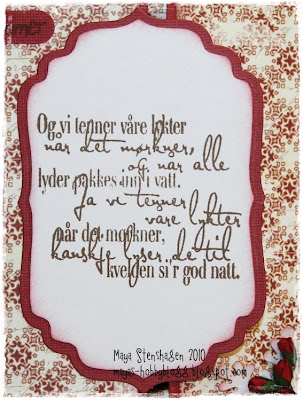 Og vi tenner våre lykter
når det mørkner,
og når alle
lyder pakkes inn i vatt.
Ja vi tenner
våre lykter
når det mørkner,
kanskje lyser de til
kvelden si'r god natt.
Maya Stenshagen 2010
mayas-hobbyblogg.blogspot.com